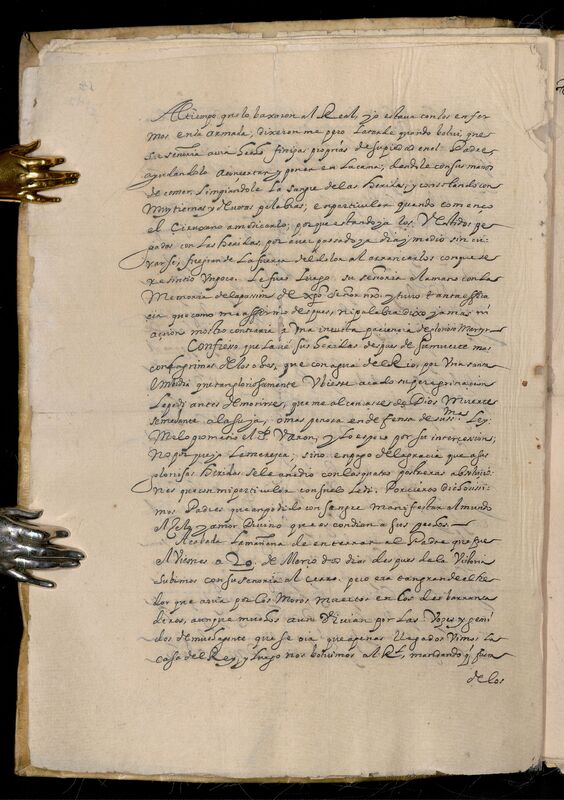 Al tiempo que lo baxaron al Real, yo estava con los enfer
mos en la armada; dixeron me pero Larache quando bolvi, que
su señoria avia hecho finezas proprias de su piedad en el Padre
ayudandole a concertar y poner en la cama; dandole con sus manos
de comer. Limpiandole La sangre de las heridas, y consolandolo con
Muy tiernas y devotas palabras, en particular quando començo
el Cirujano a médicarlo; porque estando ya los Vestidos pe
gados con las heridas, por aver passado ya dia y medio sin cu
rarse, fue grande La fuerza del dolor al arrancarlos con que se
resintio un poco. Le fue Luego su señoria a la mano con la
Memoria de la passion de xpo señor nro, y tuvo tanta effica
cia que como me affirmo despues, ni palabra dixo jamas ni
acçion mostro contraria a Una invicta paciencia de glorioso Martyr.
Confiesso que lavé sus heridas despues de su muerte mas
con lagrimas de los ojos, que con agua del Rio, por Una santa
Umbidia que tan gloriosamente Ubiesse acabado su peregrinacion
Le pedi antes de morirse, que me alcansasse de Dios Muerte
semejante a la suya, o mas penosa en defensa de su ss.ma Ley.
Me lo prometio el S.to Varon, y Lo espero por su intercession,
No por que yo La meresca, sino en pago de la gracia que a sus
gloriosas heridas se le añedio con las quatro postreras absolucio
nes que con mi particular consuelo Le di. O dichosissi
mos Padres que an podido con sangre manifestar al mundo
el zelo y amor Divino que escondian a sus pechos.
Acabada La mañana de enterrar al Padre que fue
el Viernes a 20. de Março dos dias despues de la Vitoria
subimos con su señoria al cerro. pero era tan grande el he
dor que avia por Los Moros muertos en Los des barranca
deros, aunque muchos aun Vivian por Las Vozes y gemi
dos de muchagente que se oia que apenas llegados Vimos la
casa del Rey, y luego nos bolvimos al Rl, mandando q̃ fuera
de los